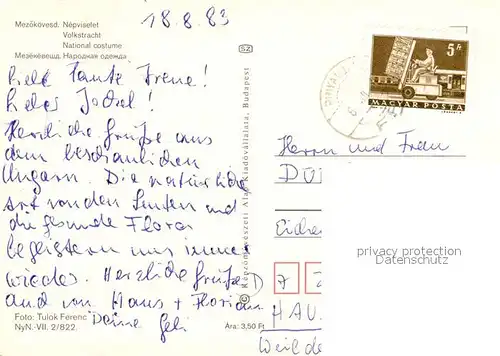 Mezőkövesd. Népviselet
Volkstracht
National costume
Мезёкёвешд. Народная одежда
18.8.83
SZ
5 Ft
MAGYAR POSTA
Liebe Tante Irene!
Liebes Jockel!
Herzliche Grüße aus
dem beschaulichen
Ungarn. Die natürliche
Art von den Leuten und
die gesunde Flora
begeistern uns immer
wieder. Herzliche Grüße
auch von Hans + Florian
Deine Geli
Foto: Tulok Ferenc
NyN.-VII. 2/822.
Ára: 3,50 Ft
© Képzőművészeti Alap Kiadóvállalata, Budapest
Herrn und Frau
DÜ
Eiche
privacy protection
Datenschutz
D 7
HAU
Weil de